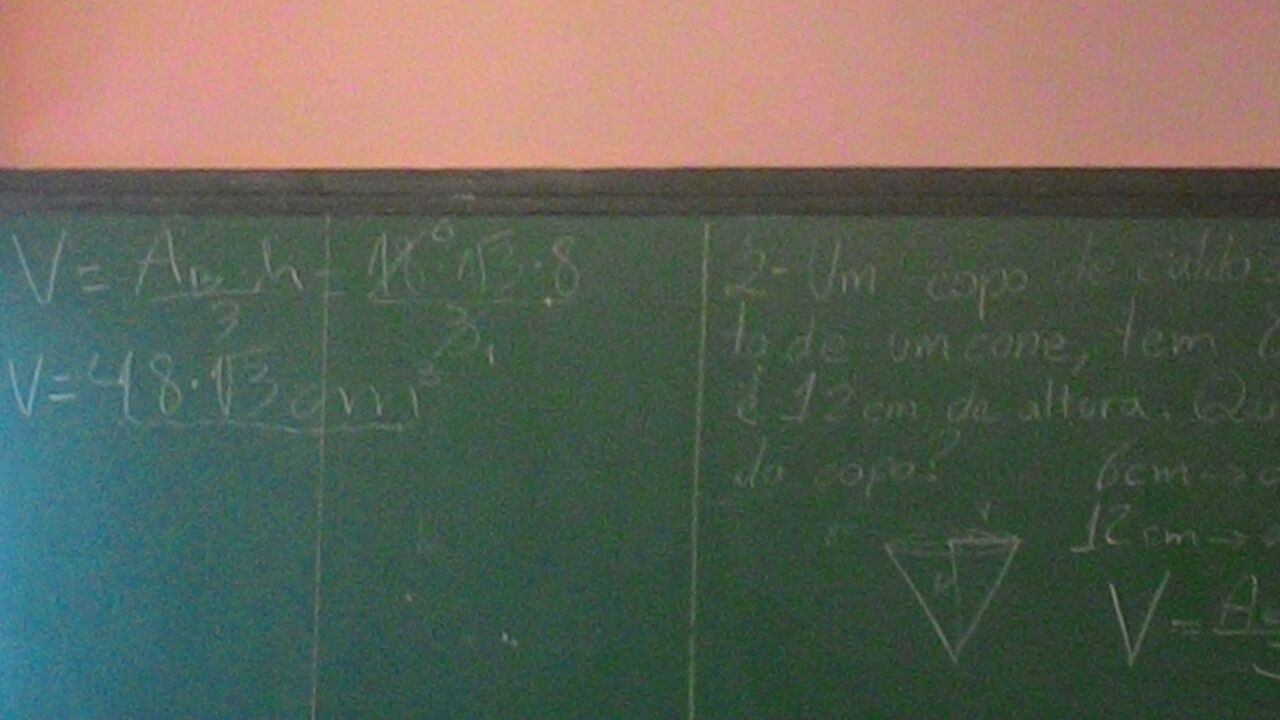 V = Ab · h / 3 = 18 6 · √3 · 8 / 3 1
V = 48 · √3 cm³
2- Um copo de caldo
to de um cone, tem
e 12 cm de altura.
do copo?
6cm →
12 cm →
r
H
V =